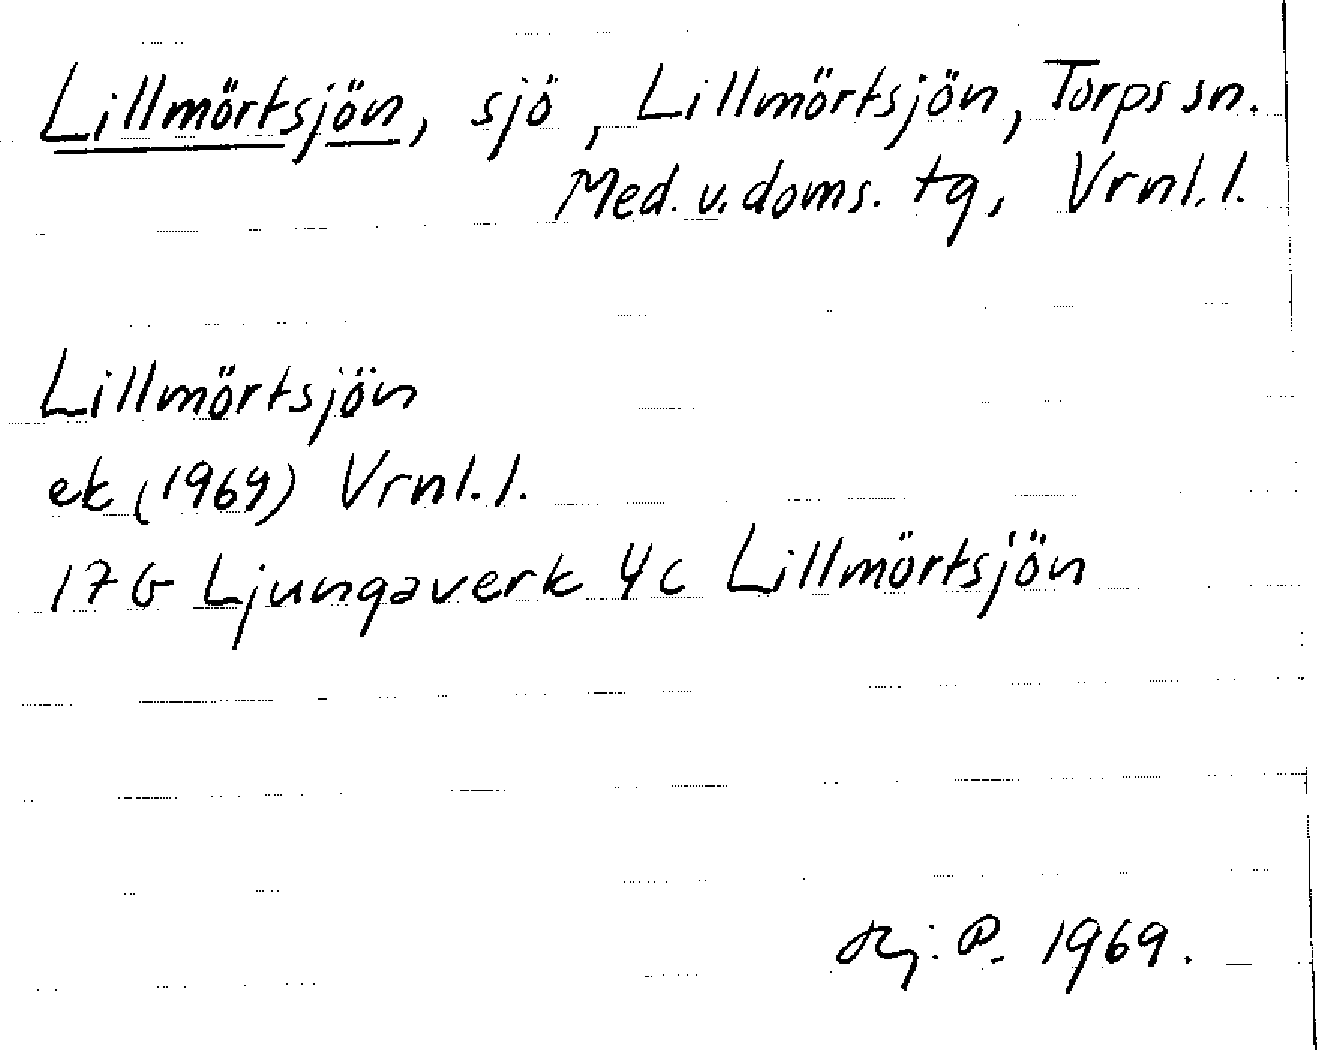 Lillmörtsjön, sjö, Lillmörtsjön, Torps sn.
Med. v. doms. tg, Vrnl. l.
Lillmörtsjön
ek (1964) Vrnl. l.
17 G Ljungaverk 4c Lillmörtsjön
P. 1969.